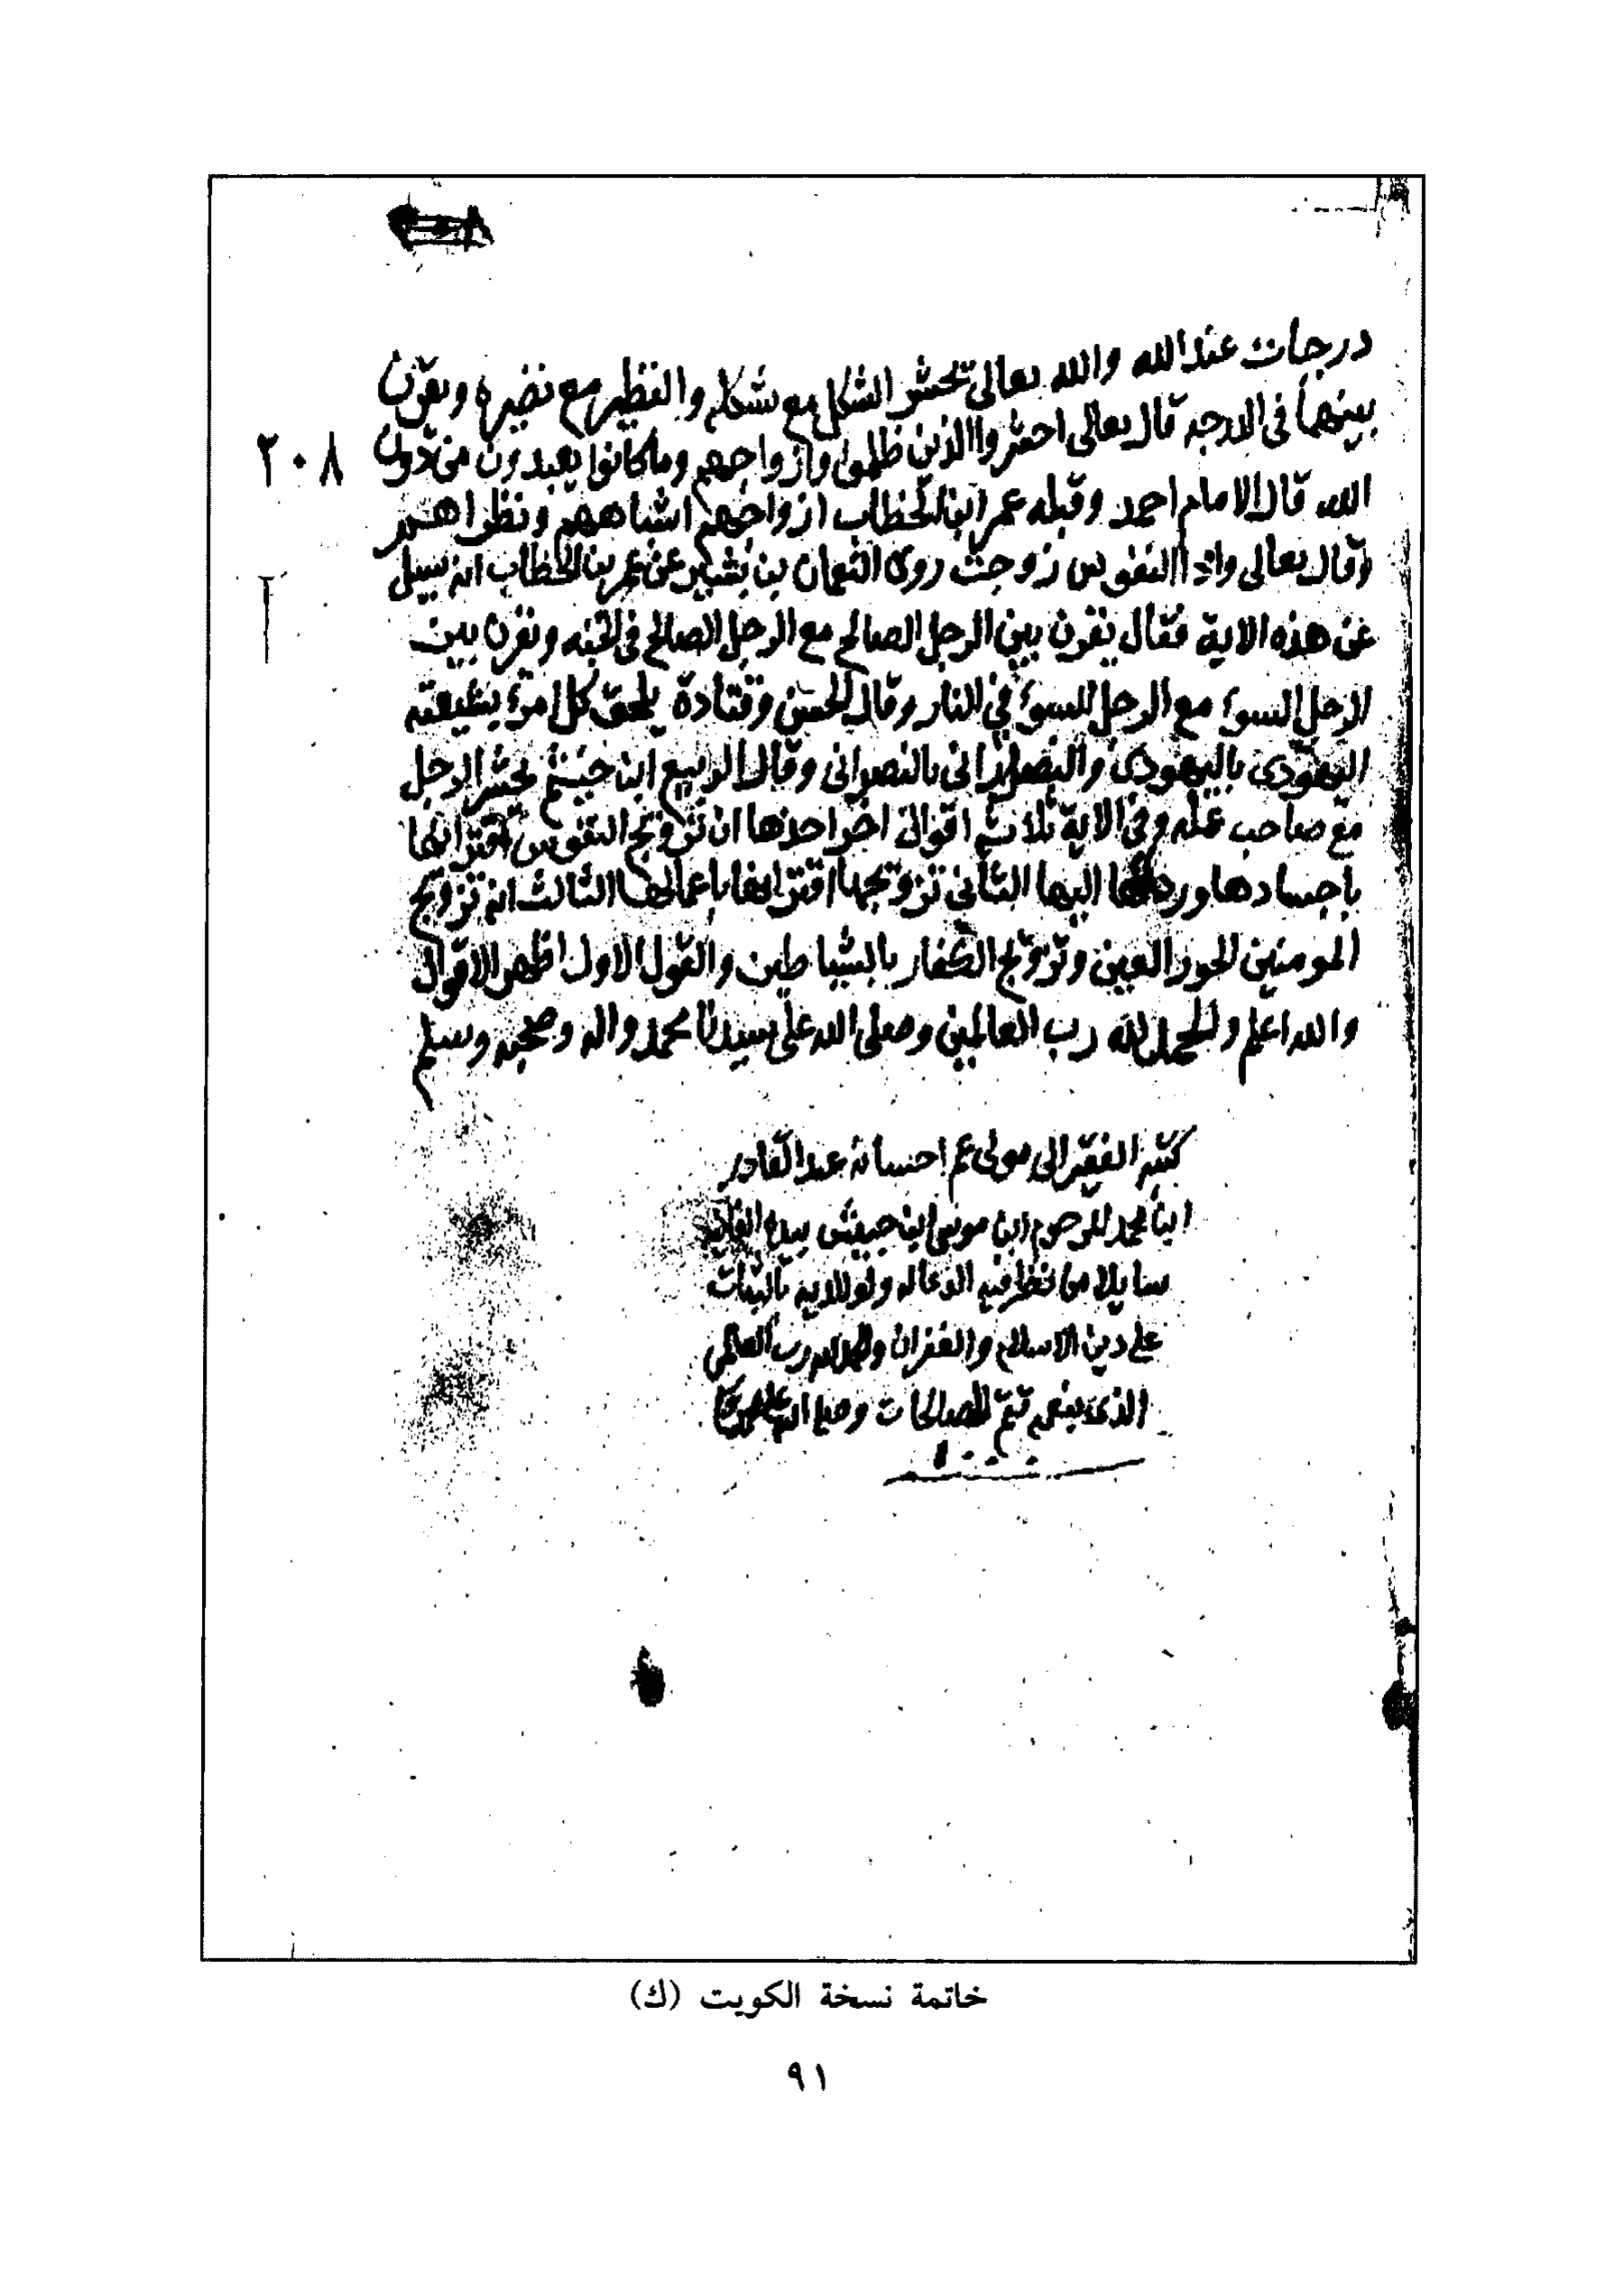 درجات عند الله والله تعالى يحشر الشكل مع شكله والنظير مع نضيره ويقرن
بينهما في الدرجه قال تعالى احشروا الذين ظلموا وازواجهم وما كانوا يعبدون من دون
٢٠٨
الله قال الامام احمد وقبله عمر ابن الخطاب ازواجهم اشباههم ونظراهم
وقال تعالى واذا النفوس زوجت روى النعمان بن بشير عن عمر بن الخطاب انه سيل
عن هذه الاية فقال يقرن بين الرجل الصالح مع الرجل الصالح في الجنه ويقرن بين
الرجل السوء مع الرجل السوء في النار وقال الحسن وقتادة يلحق كل امرء بشيعته
اليهودي باليهودي والنصراني بالنصراني وقال الربيع ابن خيثم يحشر الرجل
مع صاحب عمله وفي الاية ثلاثة اقوال اخر احدها ان تزويج النفوس اقترانها
باجسادها وردها اليها الثاني تزويجها اقترانها باعمالها الثالث انه تزويج
المومنين الحور العين وتزويج الكفار بالشياطين والقول الاول اظهر الاقوال
والله اعلم والحمد لله رب العالمين وصلى الله على سيدنا محمد واله وصحبه وسلم
كتبه الفقير الى مولى عم احسانه عبد القادر
ابن محمد المرحوم ابن موسى ابن حبيش بيده الفانيه
سايلا من نظر فيه الدعا له ولوالديه بالثبات
على دين الاسلام والغفران والحمد لله رب العالمين
الذي بنعمته تتم الصالحات وصلى الله على
خاتمة نسخة الكويت (ك)
٩١